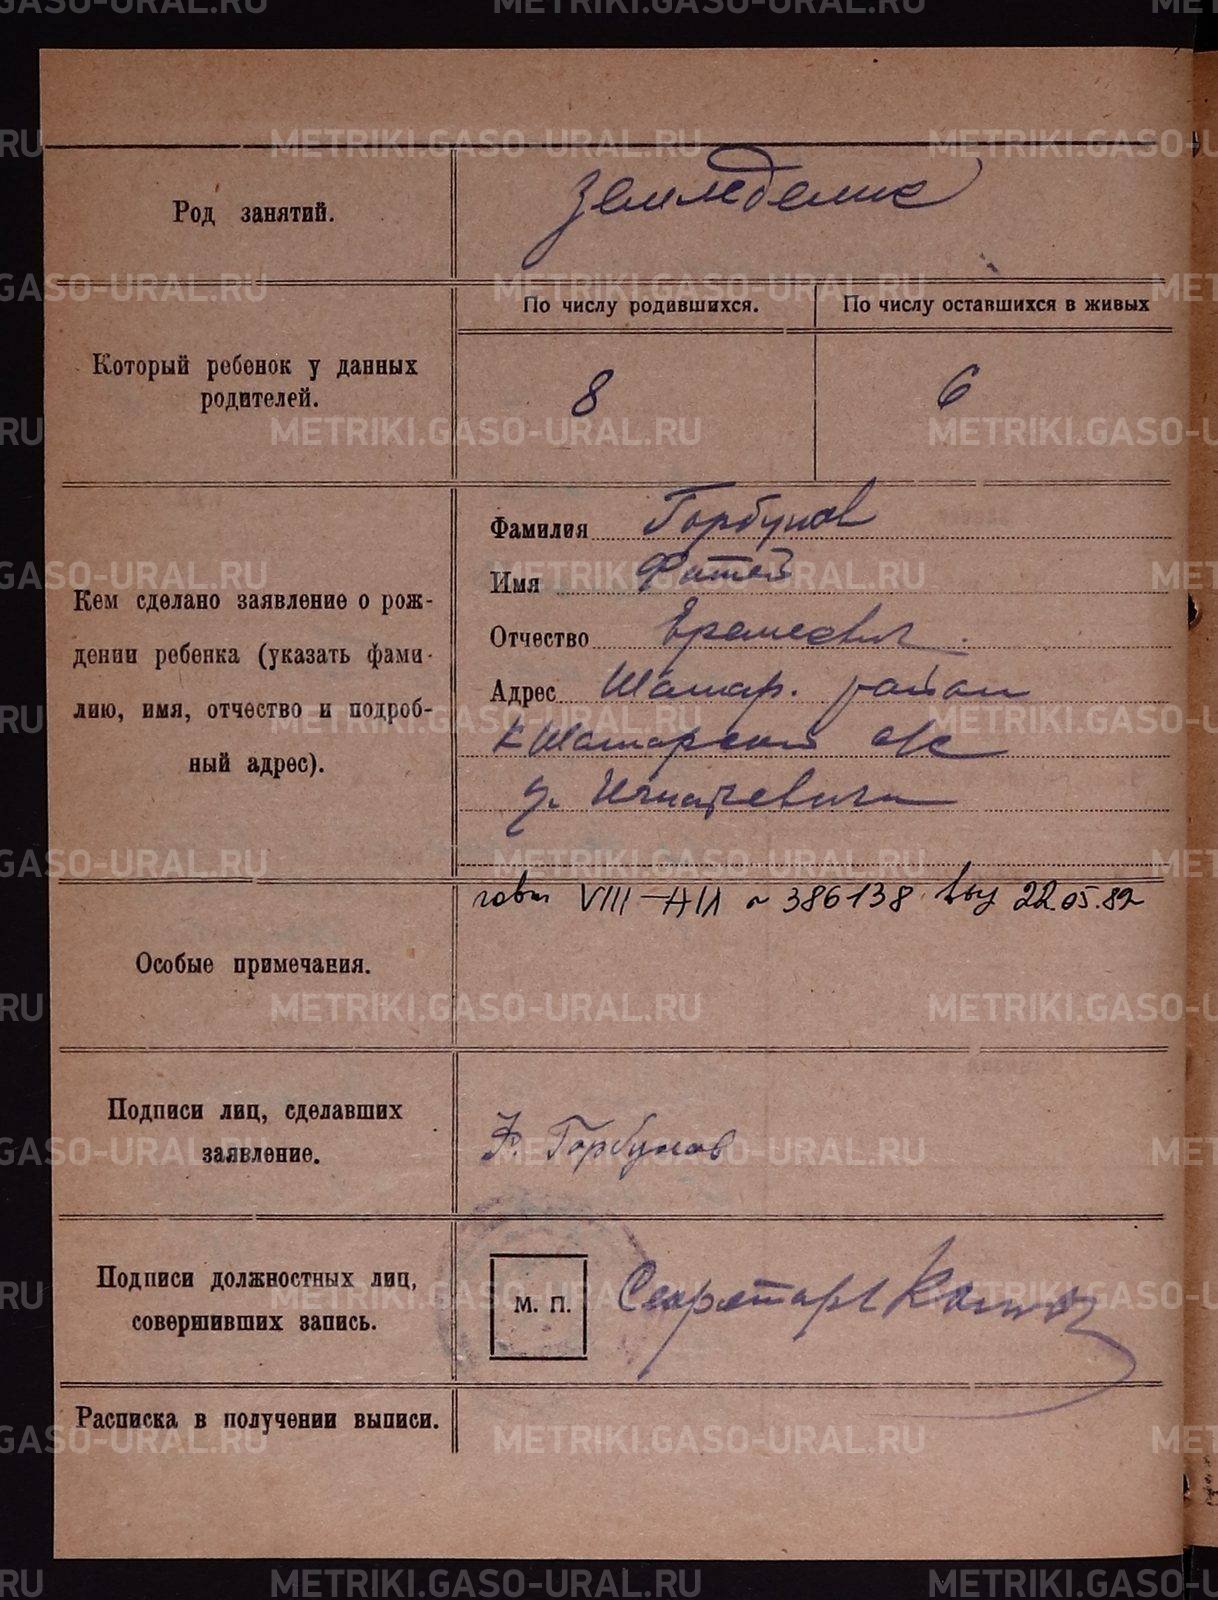 METRIKI.GASO-URAL.RU
Род занятий.
Земледелие
Который ребенок у данных
родителей.
По числу родившихся.
По числу оставшихся в живых
8
6
Кем сделано заявление о рож-
дении ребенка (указать фами-
лию, имя, отчество и подроб-
ный адрес).
Фамилия Горбунов
Имя Фатей
Отчество
Адрес Шамар. район
К Шамарский с/с
д.
Особые примечания.
VIII-АИ № 386138 22.05.82
Подписи лиц, сделавших
заявление.
Ф. Горбунов
Подписи должностных лиц,
совершивших запись.
М. П.
Секретарь
Расписка в получении выписи.